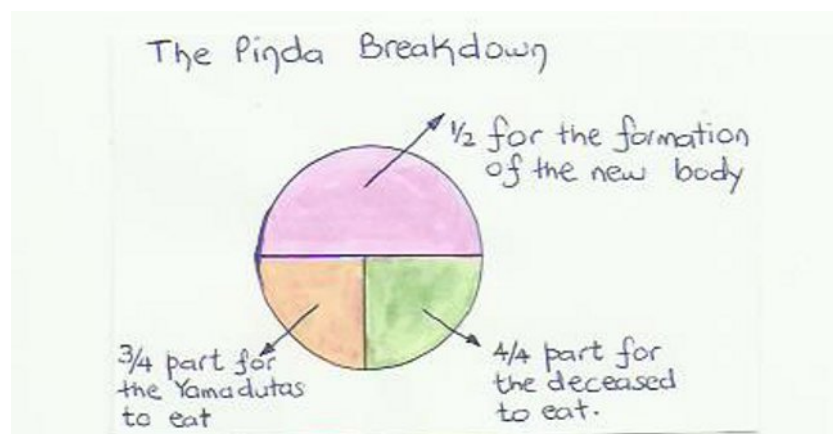 The Pinda Breakdown
1/2 for the formation
of the new body
3/4 part for
the Yamadutas
to eat
4/4 part for
the deceased
to eat.